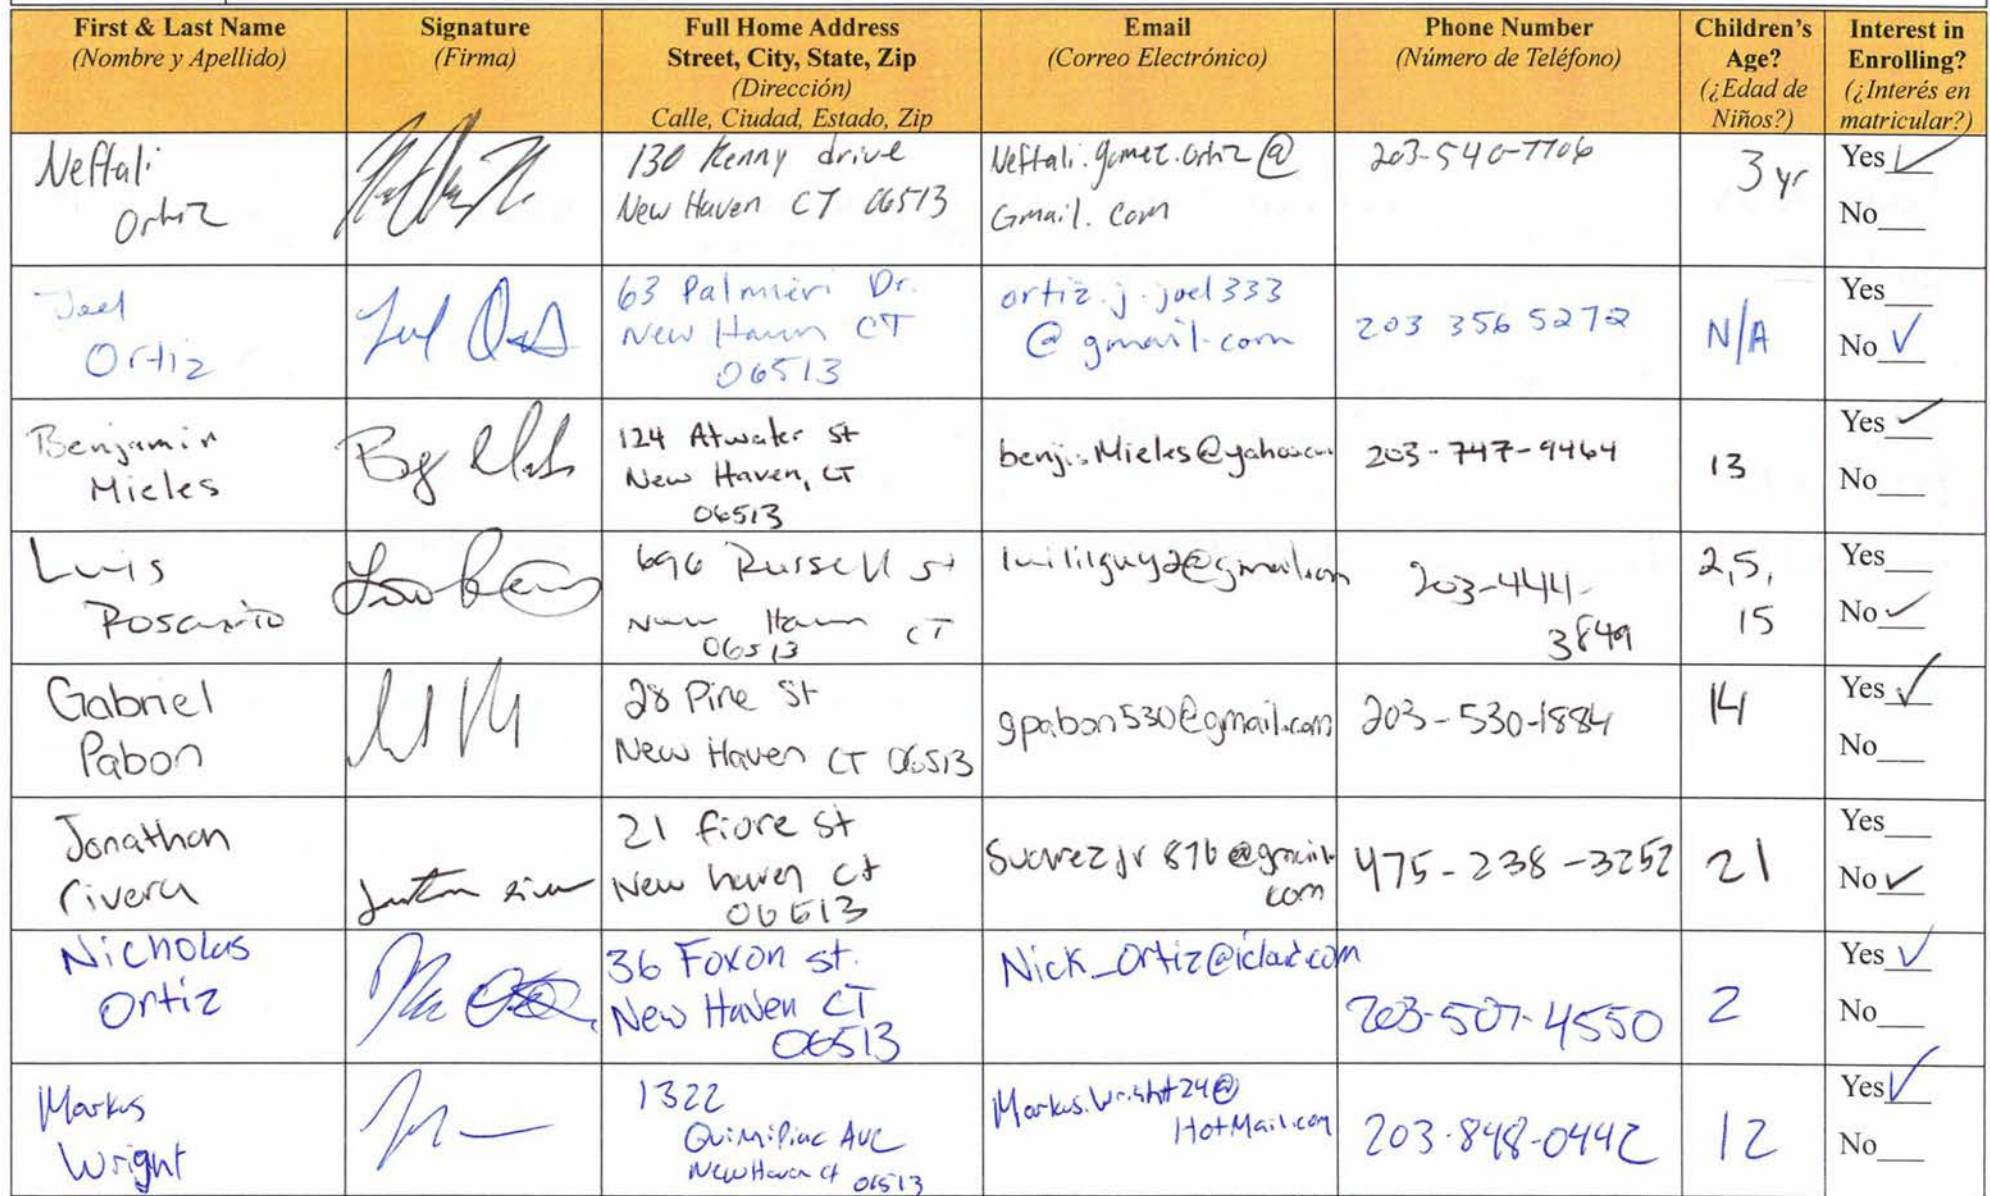 First & Last Name
(Nombre y Apellido)
Signature
(Firma)
Full Home Address
Street, City, State, Zip
(Dirección)
Calle, Ciudad, Estado, Zip
Email
(Correo Electrónico)
Phone Number
(Número de Teléfono)
Children's
Age?
(¿Edad de
Niños?)
Interest in
Enrolling?
(¿Interés en
matricular?)
Neftali
Ortiz
130 Kenny drive
New Haven CT 06513
Neftali.gomez.ortiz@
Gmail.com
203-540-7706
3 yr
Yes ✓
No___
Joel
Ortiz
63 Palmieri Dr.
New Haven CT
06513
ortiz.j.joel333
@gmail.com
203 356 5272
N/A
Yes___
No ✓
Benjamin
Mieles
124 Atwater st
New Haven, CT
06513
benji.Mieles@yahoo.com
203-747-9464
13
Yes ✓
No___
Luis
Rosario
696 Russell st
New Haven CT
06513
luililguy2@gmail.com
203-444-
3849
2,5,
15
Yes___
No ✓
Gabriel
Pabon
28 Pine St
New Haven CT 06513
gpabon530@gmail.com
203-530-1884
14
Yes ✓
No___
Jonathan
rivera
21 fiore st
New haven ct
06513
Suarezjr876@gmail.
com
475-238-3252
21
Yes___
No ✓
Nicholas
Ortiz
36 Foxon st.
New Haven CT
06513
Nick_Ortiz@icloud.com
203-507-4550
2
Yes ✓
No___
Markus
Wright
1322
Quinnipiac AVE
New Haven ct 06513
Markus.Wright24@
HotMail.com
203-848-0442
12
Yes ✓
No___